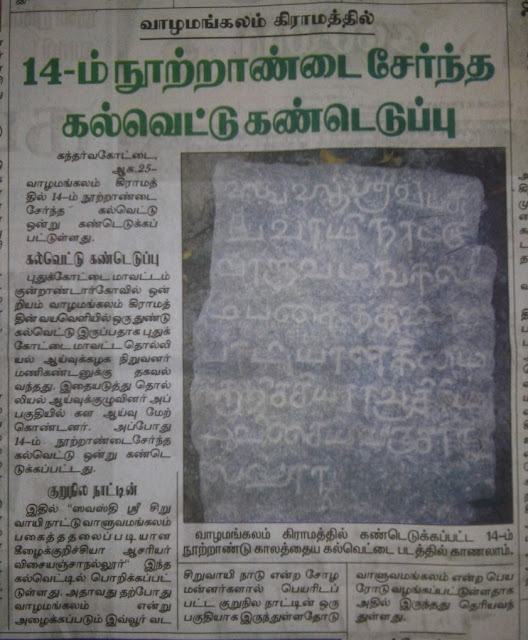 வாழமங்கலம் கிராமத்தில்
14-ம் நூற்றாண்டை சேர்ந்த
கல்வெட்டு கண்டெடுப்பு
கந்தர்வகோட்டை,
ஆக.25-
வாழமங்கலம் கிராமத்
தில் 14-ம் நூற்றாண்டை
சேர்ந்த கல்வெட்டு
ஒன்று கண்டெடுக்கப்
பட்டுள்ளது.
கல்வெட்டு கண்டெடுப்பு
புதுக்கோட்டை மாவட்டம்
குன்றாண்டார்கோவில் ஒன்
றியம் வாழமங்கலம் கிராமத்
தின் வயவெளியில் ஒரு துண்டு
கல்வெட்டு இருப்பதாக புதுக்
கோட்டை மாவட்ட தொல்லி
யல் ஆய்வுக்கழக நிறுவனர்
மணிகண்டனுக்கு தகவல்
வந்தது. இதையடுத்து தொல்
லியல் ஆய்வுக்குழுவினர் அப்
பகுதியில் கள ஆய்வு மேற்
கொண்டனர். அப்போது
14-ம் நூற்றாண்டைசேர்ந்த
கல்வெட்டு ஒன்று கண்டெ
டுக்கப்பட்டது.
குறுநில நாட்டின்
இதில் "ஸவஸ்தி ஸ்ரீ சிறு
வாயி நாட்டு வாளுவமங்கலம்
பகைத்ததலைப்படியான
கீழைக்குறிச்சியா ஆசரியர்
விசையஞ்சாநல்லூர்" இந்த
கல்வெட்டில் பொறிக்கப்பட்
டுள்ளது. அதாவது தற்போது
வாழமங்கலம் என்று
அழைக்கப்படும் இவ்வூர் வட
வாழமங்கலம் கிராமத்தில் கண்டெடுக்கப்பட்ட 14-ம்
நூற்றாண்டு காலத்தைய கல்வெட்டை படத்தில் காணலாம்.
சிறுவாயி நாடு என்ற சோழ
மன்னர்களால் பெயரிடப்
பட்ட குறுநில நாட்டின் ஒரு
பகுதியாக இருந்துள்ளதோடு
வாளுவமங்கலம் என்ற பெய
ரோடு வழங்கப்பட்டுள்ளதாக
அதில் இருந்தது தெரியவந்
துள்ளது.